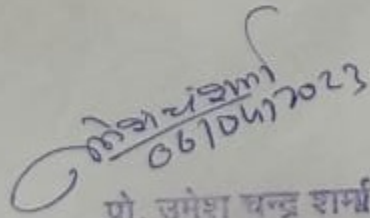 06/04/2023
प्रो. उमेश चन्द्र शर्मा